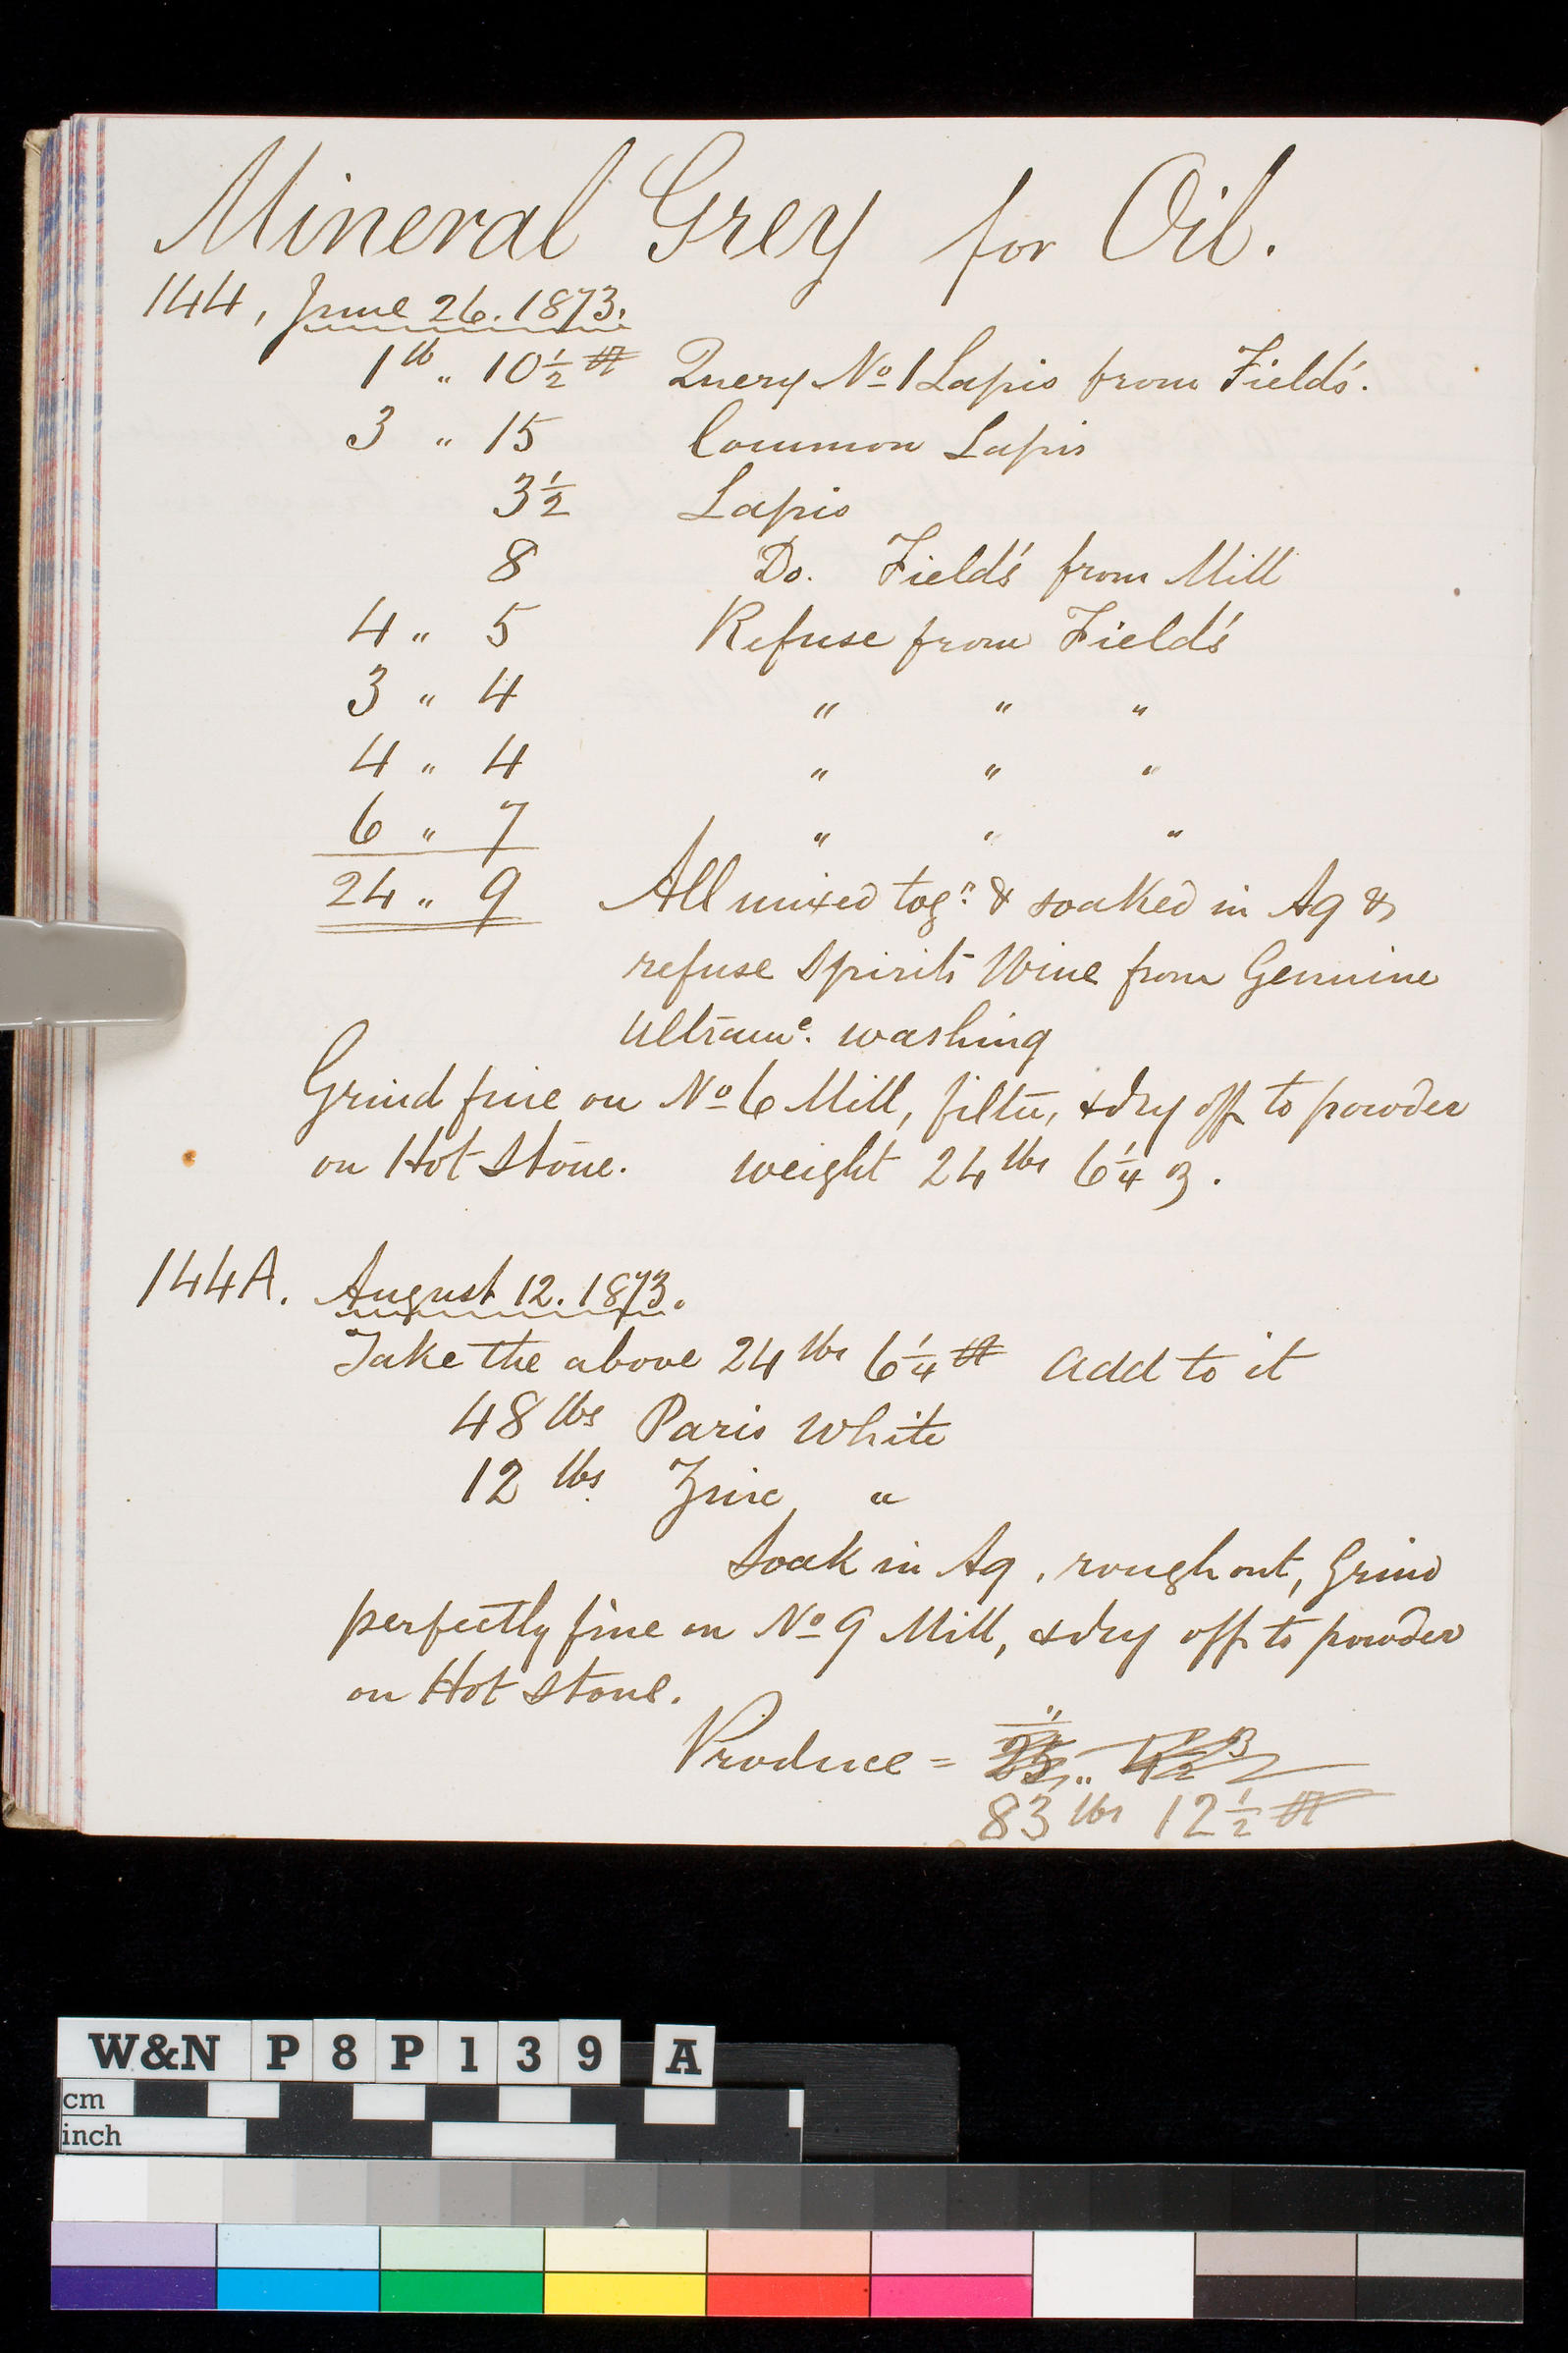 Mineral Grey for Oil.
144, June 26. 1873.
1 lb „ 10½ Query No 1 Lapis from Field's.
3 „ 15 Common Lapis
3½ Lapis
8 Do. Field's from Mill
4 „ 5 Refuse from Field's
3 „ 4 „ „ „
4 „ 4 „ „ „
6 „ 7 „ „ „
24 „ 9 All mixed togr & soaked in Aq &
refuse Spirits Wine from Genuine
Ultrame. washing
Grind fine on No 6 Mill, filter, & dry off to powder
on Hot Stone. weight 24 lbs 6¼ ℥.
144A. August 12. 1873.
Take the above 24 lbs 6¼ add to it
48 lbs Paris White
12 lbs Zinc „
Soak in Aq, rough out, Grind
perfectly fine on No 9 Mill, & dry off to powder
on Hot Stone.
Produce =
83 lbs 12½
W&N P8P139 A
cm
inch